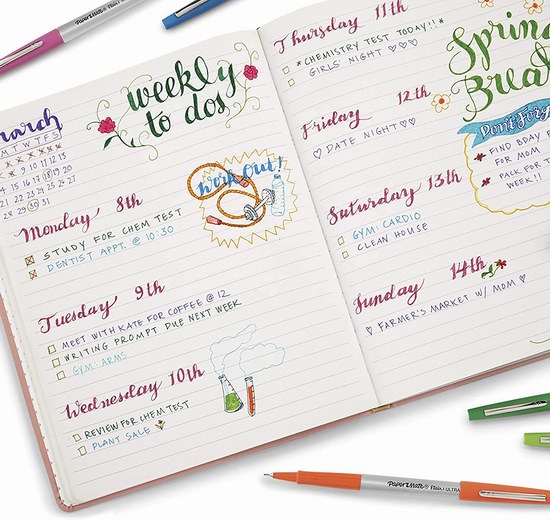 Paper Mate
weekly
to dos
arch
M T W T F S
9 10 11 12 13
15 16 17 18 19 20
22 23 24 25 26 27
28 29 30 31
Monday 8th
STUDY FOR CHEM TEST
DENTIST APPT. @ 10:30
Work Out!
Tuesday 9th
MEET WITH KATE FOR COFFEE @ 12
WRITING PROMPT DUE NEXT WEEK
GYM: ARMS
Wednesday 10th
REVIEW FOR CHEM TEST
PLANT SALE
Thursday 11th
*CHEMISTRY TEST TODAY!!*
GIRLS' NIGHT ♡♡♡
Friday 12th
♡ DATE NIGHT ♡♡
Saturday 13th
GYM: CARDIO
CLEAN HOUSE
Sunday 14th
♡ FARMER'S MARKET W/ MOM ♡
Sprin
Brea
Don't Forg
FIND BDAY
FOR MOM
PACK FOR
WEEK!!
Paper Mate® Flair. ULTRA